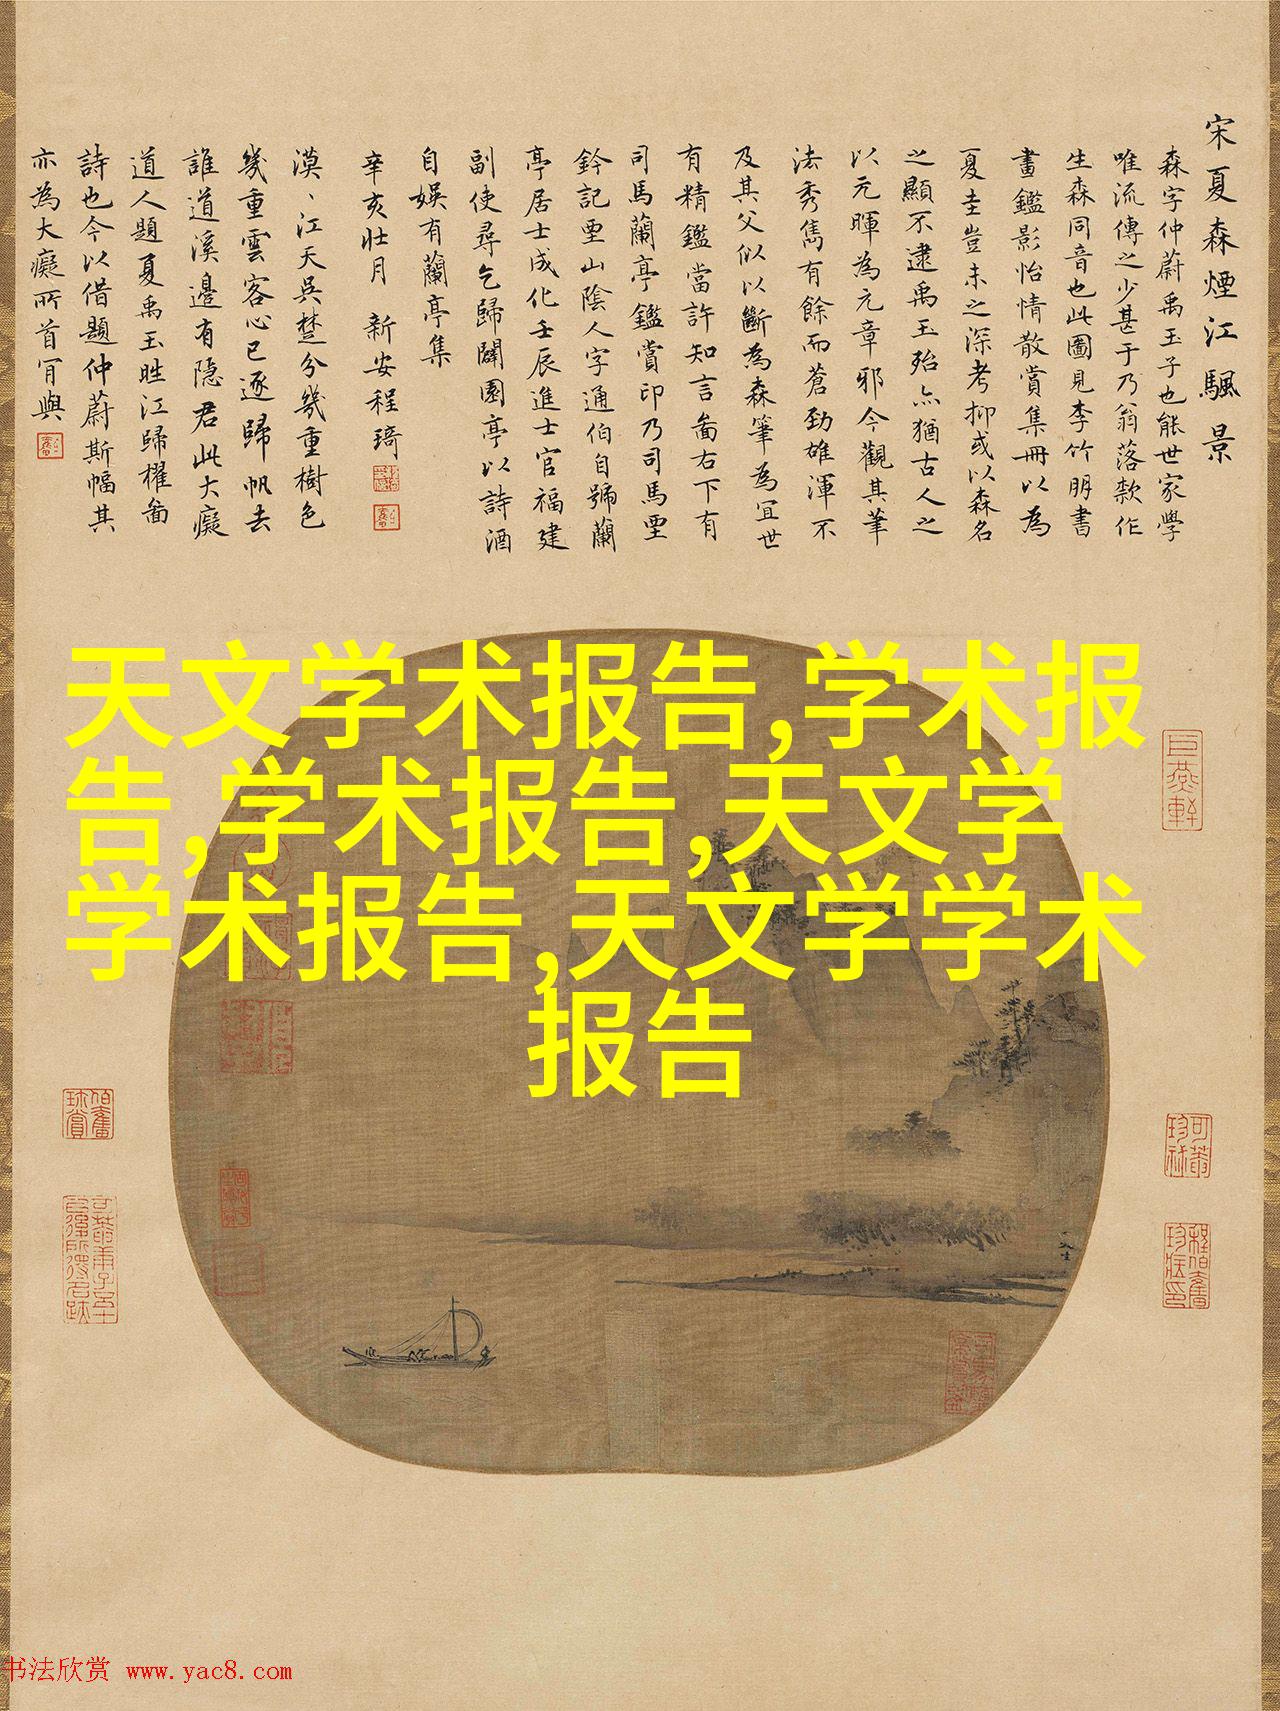 宋夏森煙江驪景
森字仲蔚禹玉子也能世家學
唯流傳之少甚于乃翁落款作
生森同音也此圖見李竹朋書
畫鑑影怡情散賞集冊以為
夏圭豈未之深考抑或以森名
之顯不逮禹玉殆亦猶古人之
以元暉為元章邪今觀其筆
法秀雋有餘而蒼勁雄渾不
及其父似以斷為森筆為宜世
有精鑑當許知言畵右下有
司馬蘭亭鑑賞印乃司馬垔
鈐記垔山陰人字通伯自號蘭
亭居士成化壬辰進士官福建
副使尋乞歸闢園亭以詩酒
自娛有蘭亭集
辛亥壯月 新安程琦
漠、江天吳楚分幾重樹色
幾重雲客心已逐歸帆去
誰道溪邊有隱君此大癡
道人題夏禹玉晴江歸櫂畵
詩也今以借題仲蔚斯幅其
亦為大癡所首肎與
天文学术报告,学术报
告,学术报告,天文学
学术报告,天文学学术
报告
书法欣赏 www.yac8.com